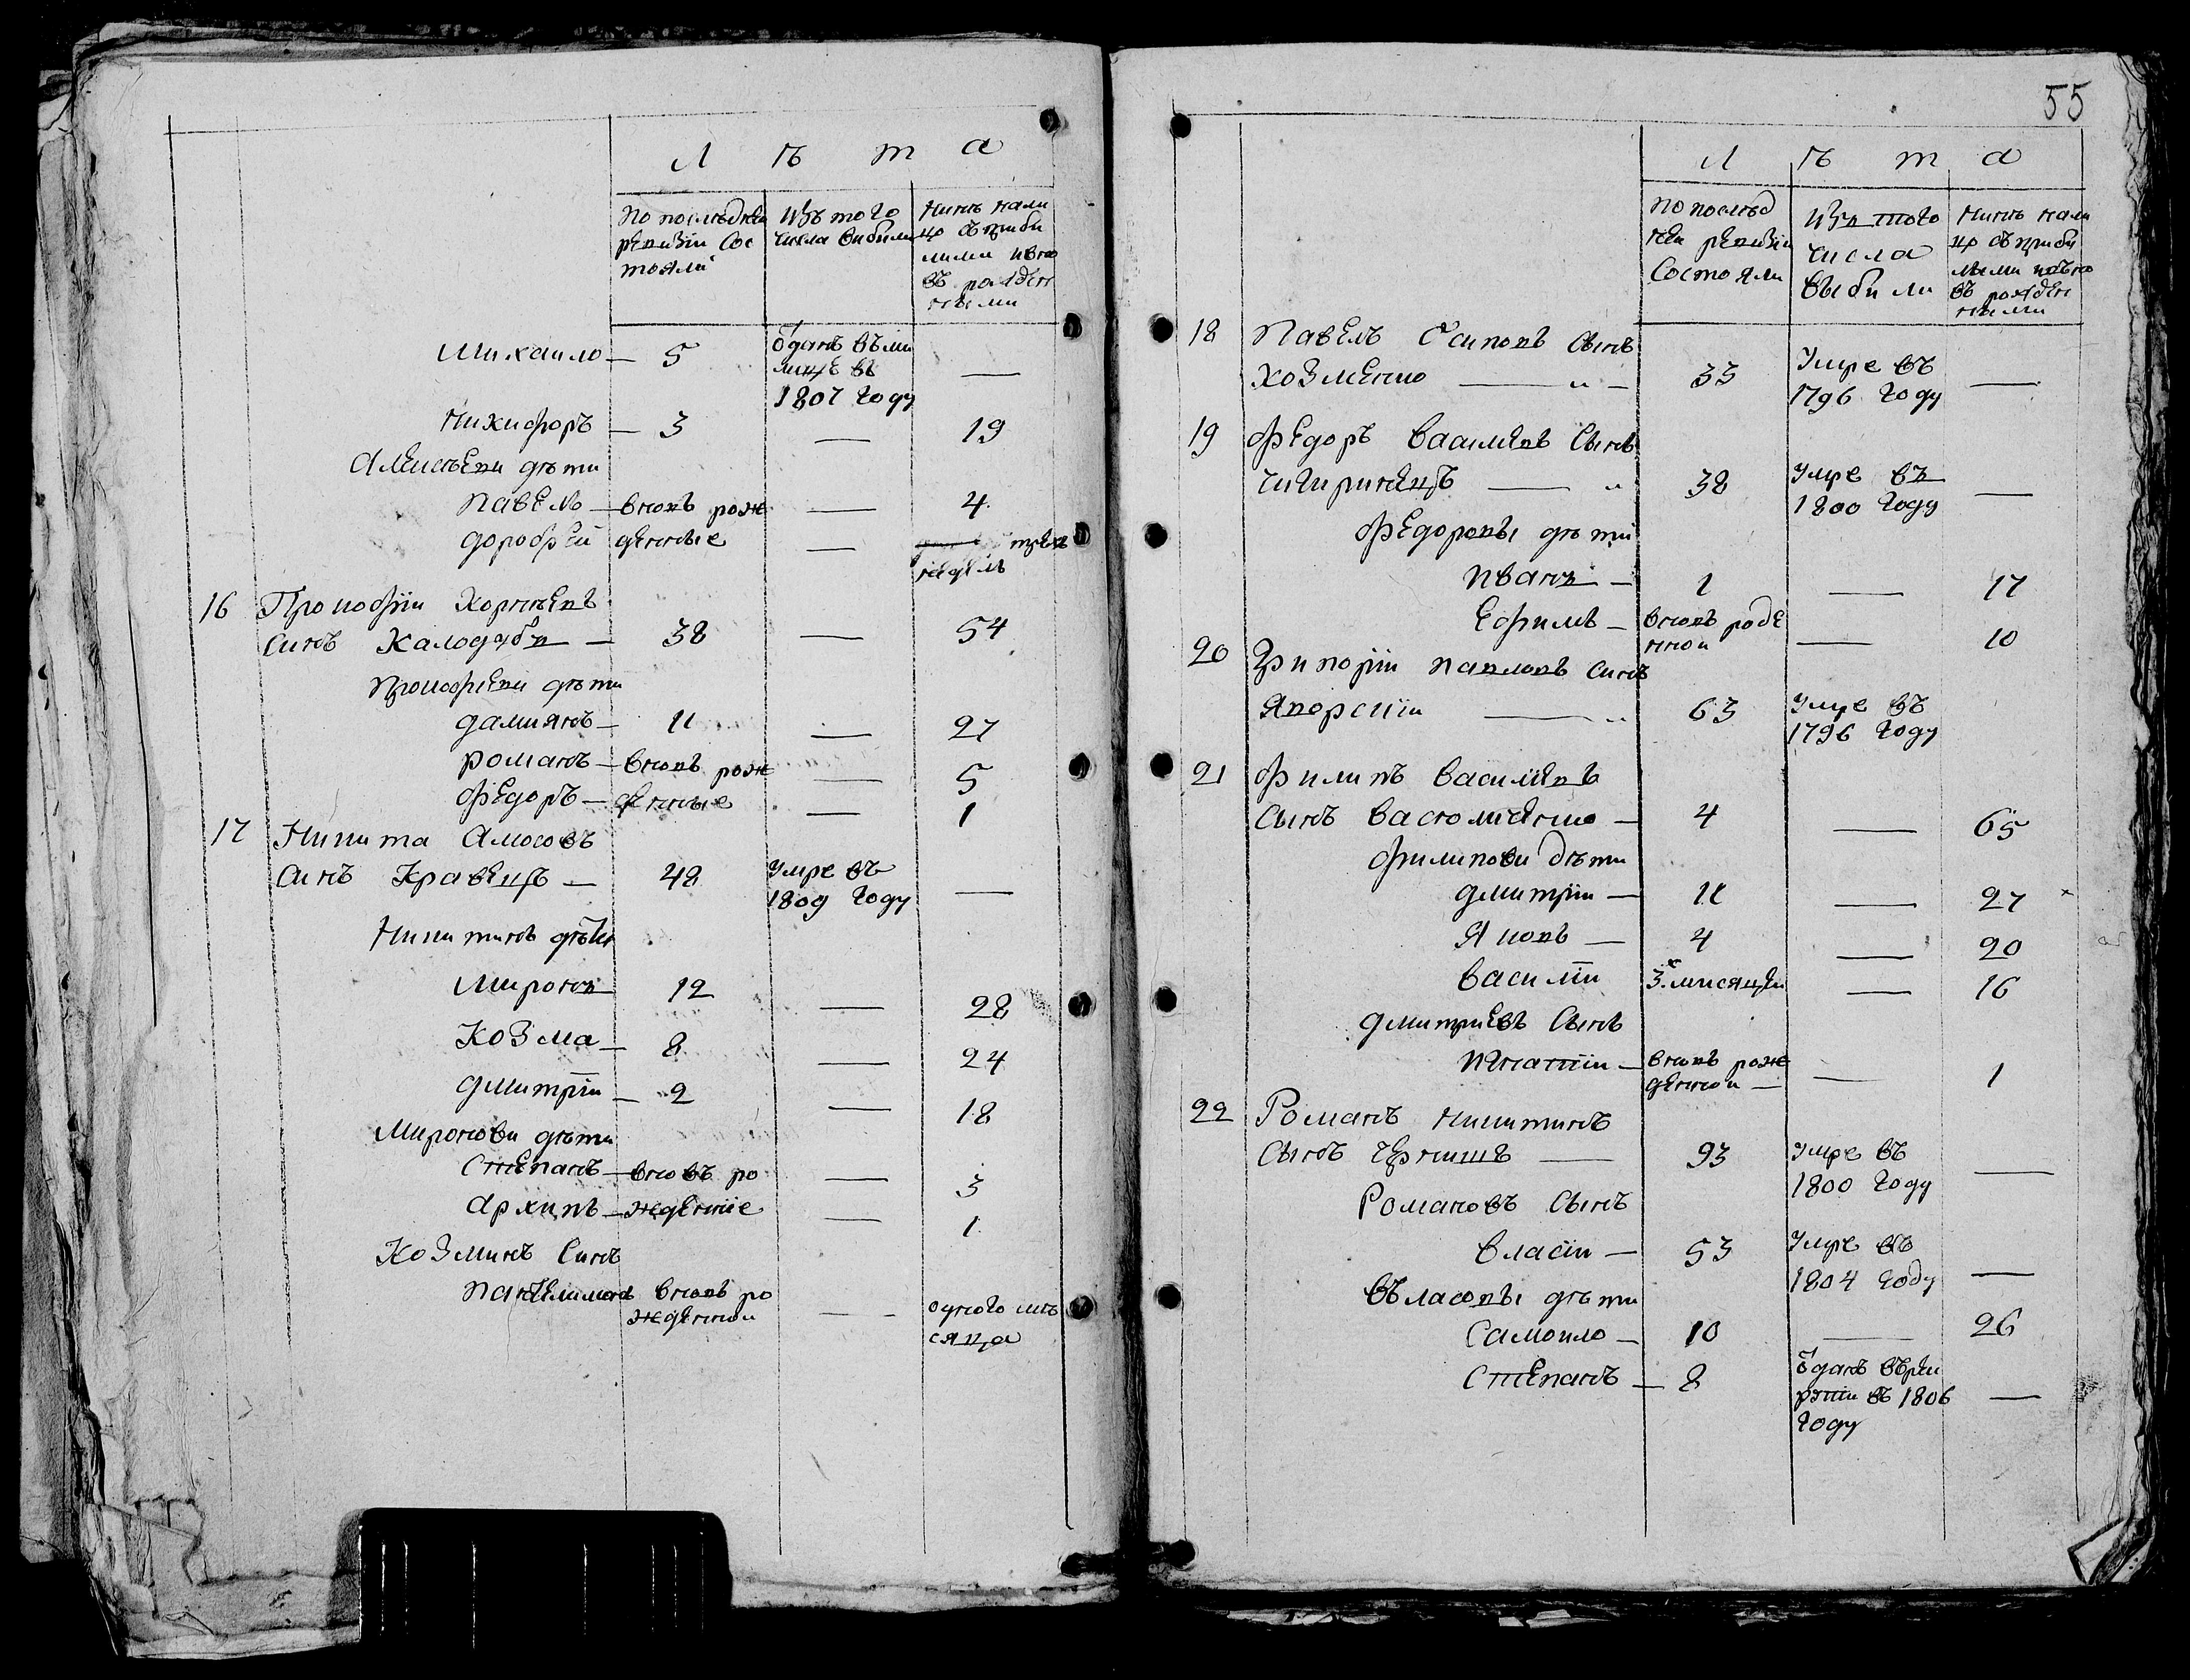 Л ѣ т а
По последнеи
ревизіи сос
тояли
Изъ того
числа вибили
Нинѣ нали
цо съ приби
лими и вно
въ рожден
ными
Михаило — 5
ѿданъ въ ми
лицѣ въ
1807 году
—
Никифоръ — 3 — 19
Алексѣеви дѣти
Павелъ — вновъ рож — 4
Дорофей денные — трехъ
недель
16 Прокофіи Корнѣевъ
синъ Калодубъ — 38 — 54
Прокофіеви дѣти
Дамиянъ — 11 — 27
Романъ — вновъ рож — 5
Федоръ — денные — 1
17 Никита Амосовъ
синъ Кравецъ — 48 Умре въ
1809 году —
Никитинъ дѣти
Миронъ 12 — 28
Козма — 8 — 24
Дмитріи — 2 — 18
Миронови дѣти
Степанъ — вновъ ро — 3
Архипъ — жденніе — 1
Козминъ синъ
Пантелимонъ вновъ ро
жденнои — одного мѣ
сяца
55
Л ѣ т а
По послѣд
неи ревизіи
состояли
Изъ того
числа
выбили
Нинѣ нали
цо съ приби
лыми и вно
въ рожден
ными
18 Павелъ Осиповъ сынъ
Козменко — 33 Умре въ
1796 году —
19 Федоръ Василіевъ сынъ
Чигиринецъ — 38 Умре въ
1800 году —
Федоровы дѣти
Иванъ — 1 — 17
Ефимъ — вновъ роде
нной — 10
20 Григоріи Павловъ синъ
Яворскіи — 63 Умре въ
1796 году
21 Филипъ Василіевъ
сынъ — 4 — 65
Филипови дѣти
Дмитріи — 11 — 27
Яковъ — 4 — 20
Василіи 3.х мисяцеи — 16
Дмитриевъ сынъ
Игнатіи — вновъ рож
деннои — — 1
22 Романъ Никитинъ
сынъ Чернишъ — 93 Умре въ
1800 году —
Романовъ сынъ
Власіи — 53 Умре въ
1804 году —
Въласовы дѣти
Самоило — 10 — 26
Степанъ — 8 ѿданъ въ рек
рути въ 1806
году —